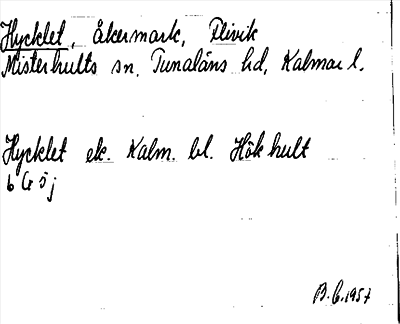 Hycklet, åkermark, Flivik
Misterhults sn, Tunaläns hd, Kalmar l.
Hycklet ek. Kalm. bl. Hökhult
b G ö j
B.C. 1957